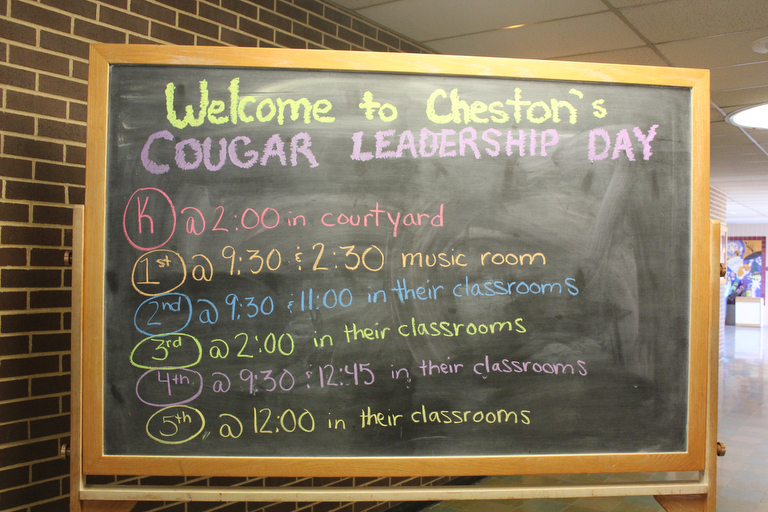 Welcome to Cheston's
COUGAR LEADERSHIP DAY
K @ 2:00 in courtyard
1st @ 9:30 & 2:30 music room
2nd @ 9:30 & 11:00 in their classrooms
3rd @ 2:00 in their classrooms
4th @ 9:30 & 12:45 in their classrooms
5th @ 12:00 in their classrooms